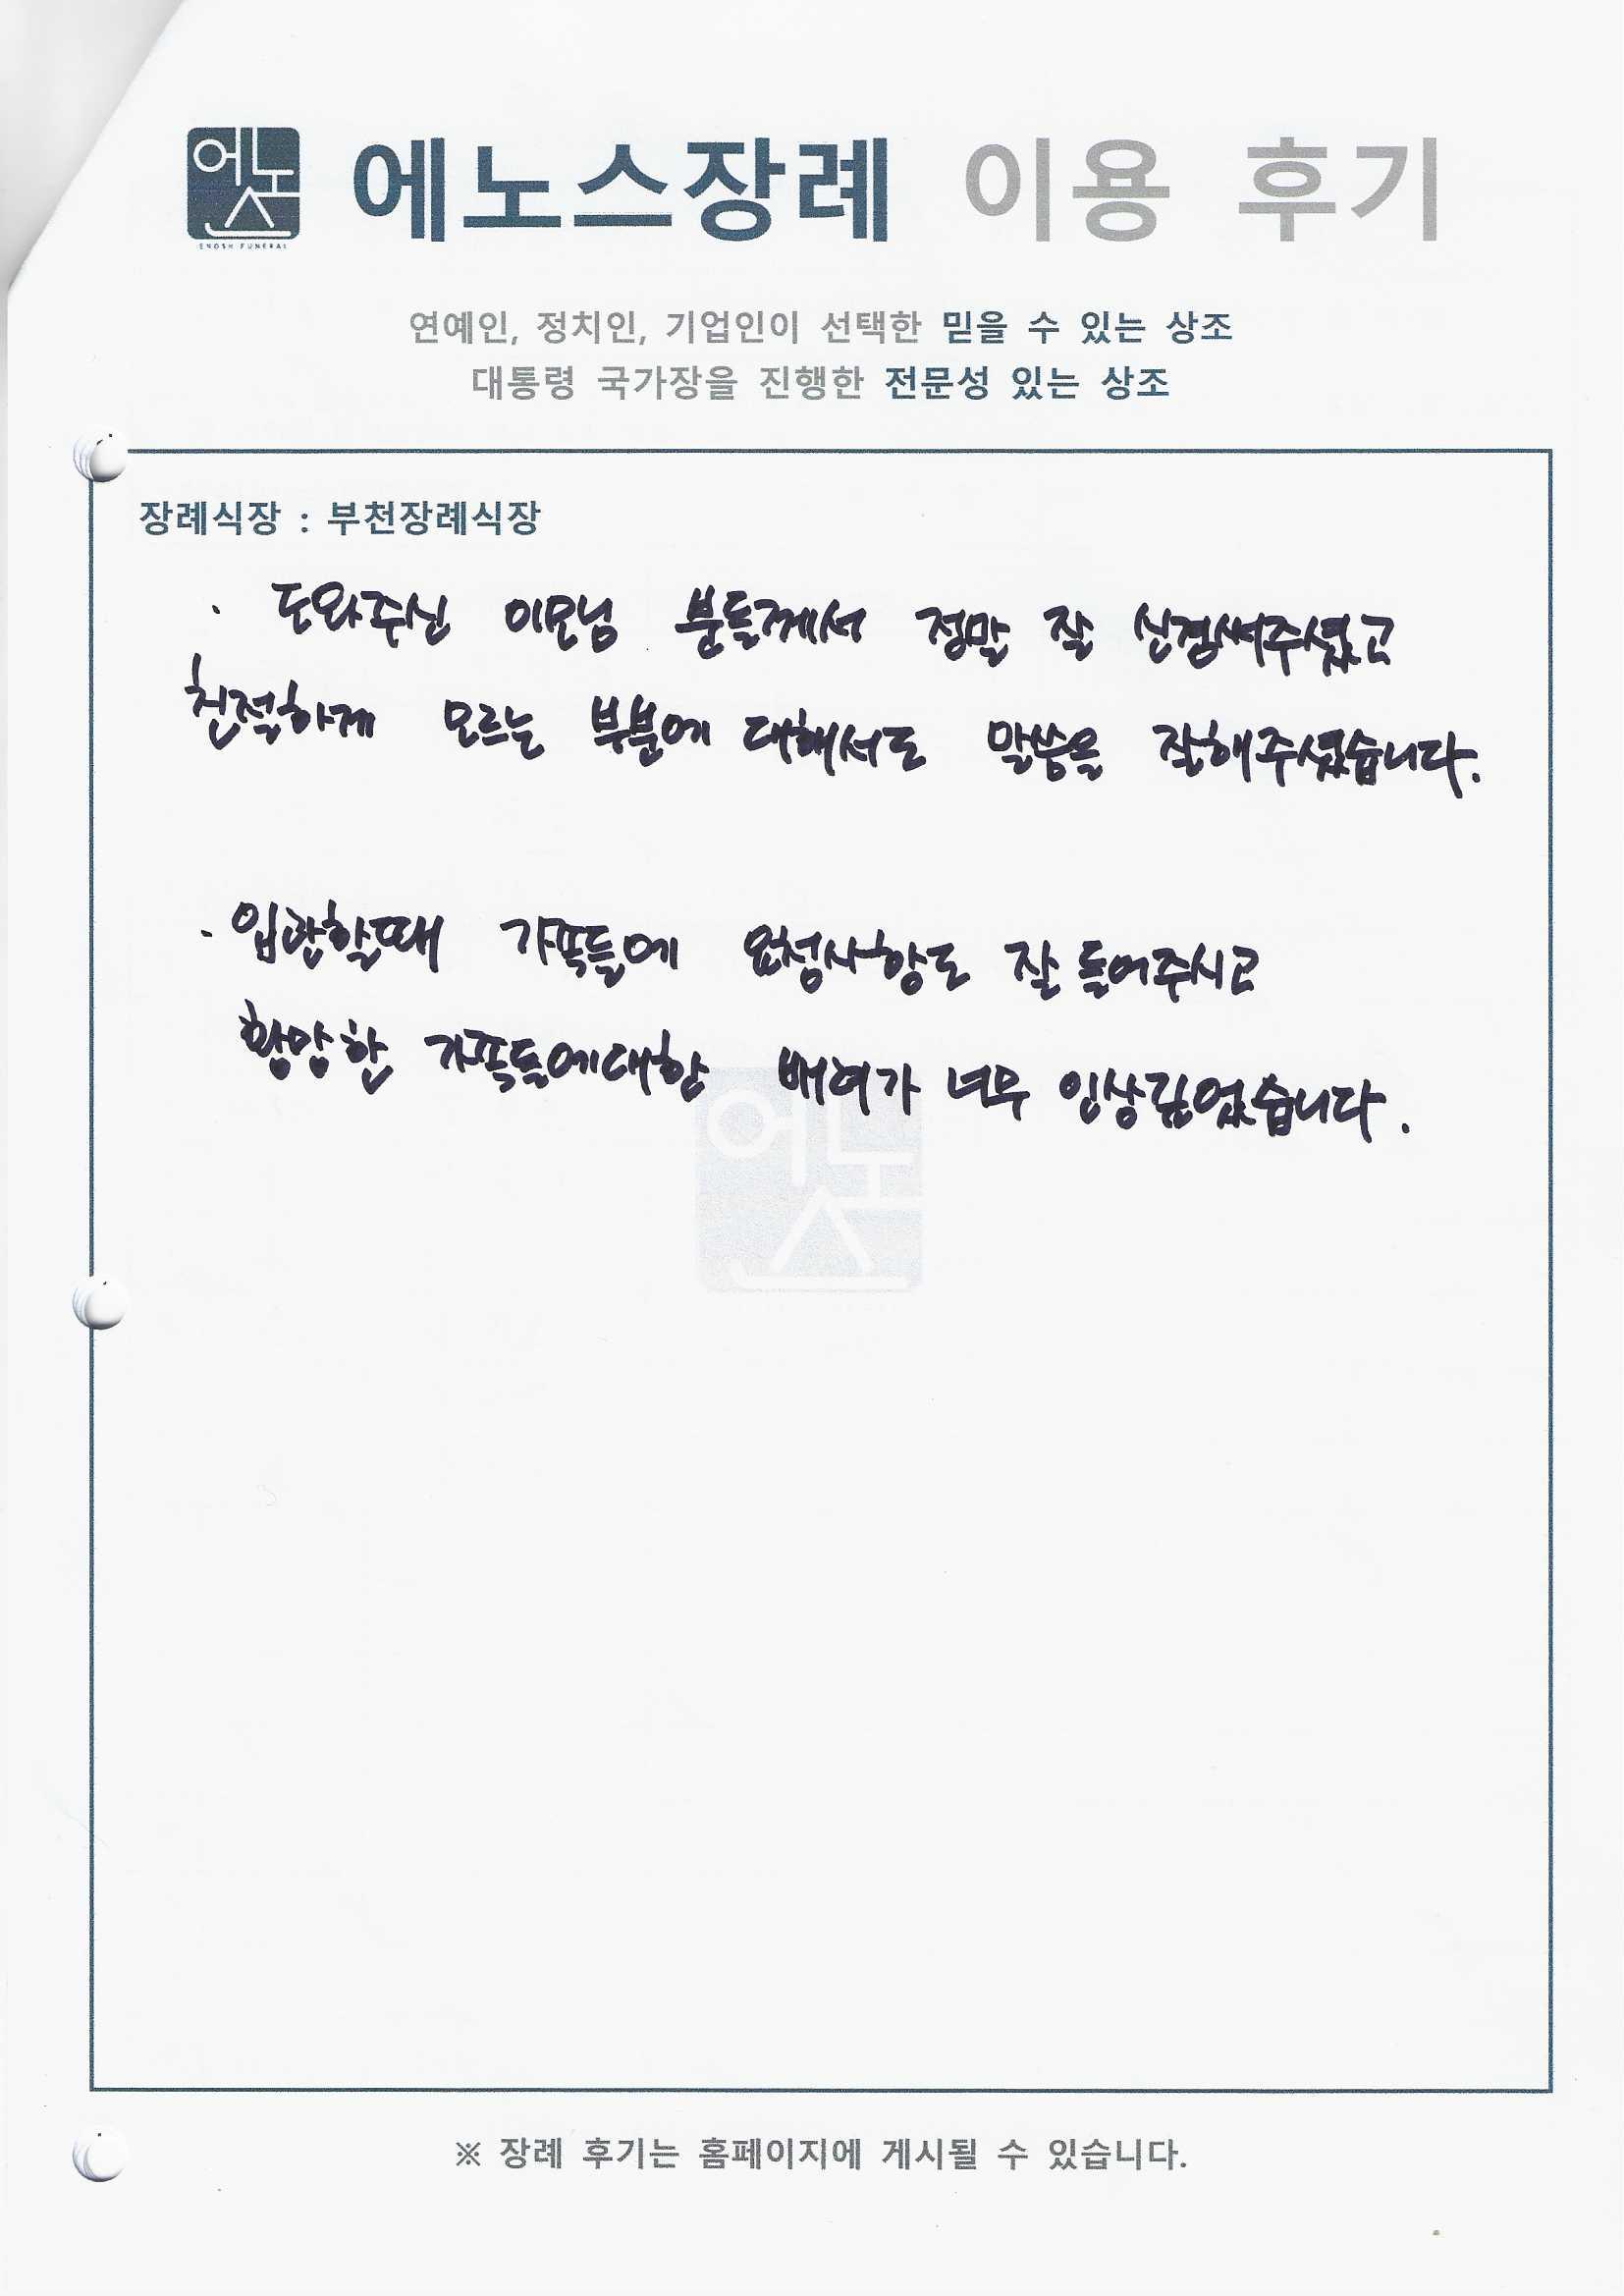 에노스
ENOSH FUNERAL
에노스장례 이용 후기
연예인, 정치인, 기업인이 선택한 믿을 수 있는 상조
대통령 국가장을 진행한 전문성 있는 상조
장례식장 : 부천장례식장
· 도와주신 이모님 분들께서 정말 잘 신경써주셨고
친절하게 모르는 부분에 대해서도 말씀을 잘해주셨습니다.
· 입관할때 가족들에 요청사항도 잘 들어주시고
황망한 가족들에대한 배려가 너무 인상깊었습니다.
에노스
※ 장례 후기는 홈페이지에 게시될 수 있습니다.